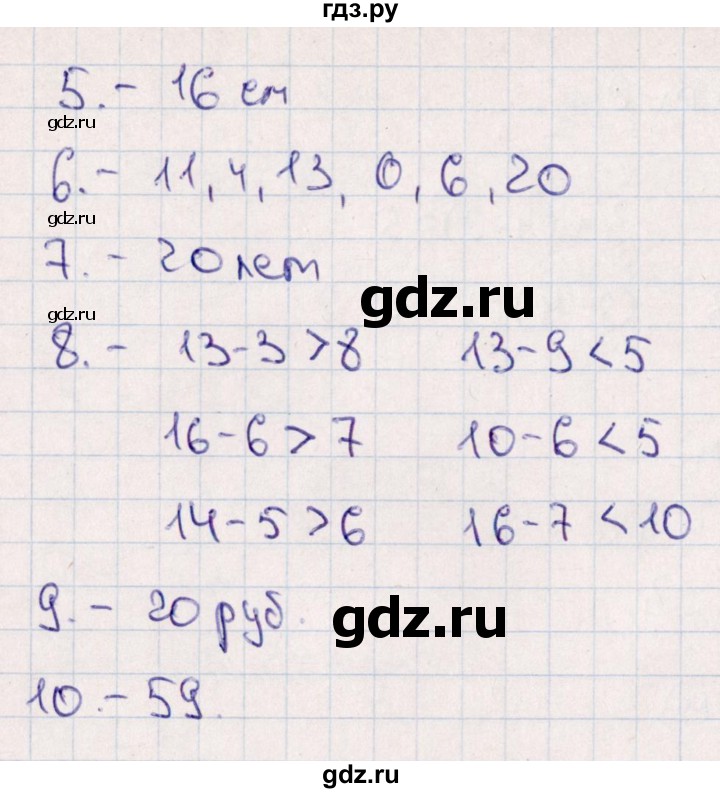 гдз.ру
5. - 16 см
gdz.ru
6. - 11, 4, 13, 0, 6, 20
gdz.ru
7. - 20 лет
gdz.ru
gdz.ru
8. - 13-3>8 13-9<5
16-6>7 10-6<5
14-5>6 16-7<10
9. - 20 руб.
gdz.ru
10. - 59.
gdz.ru